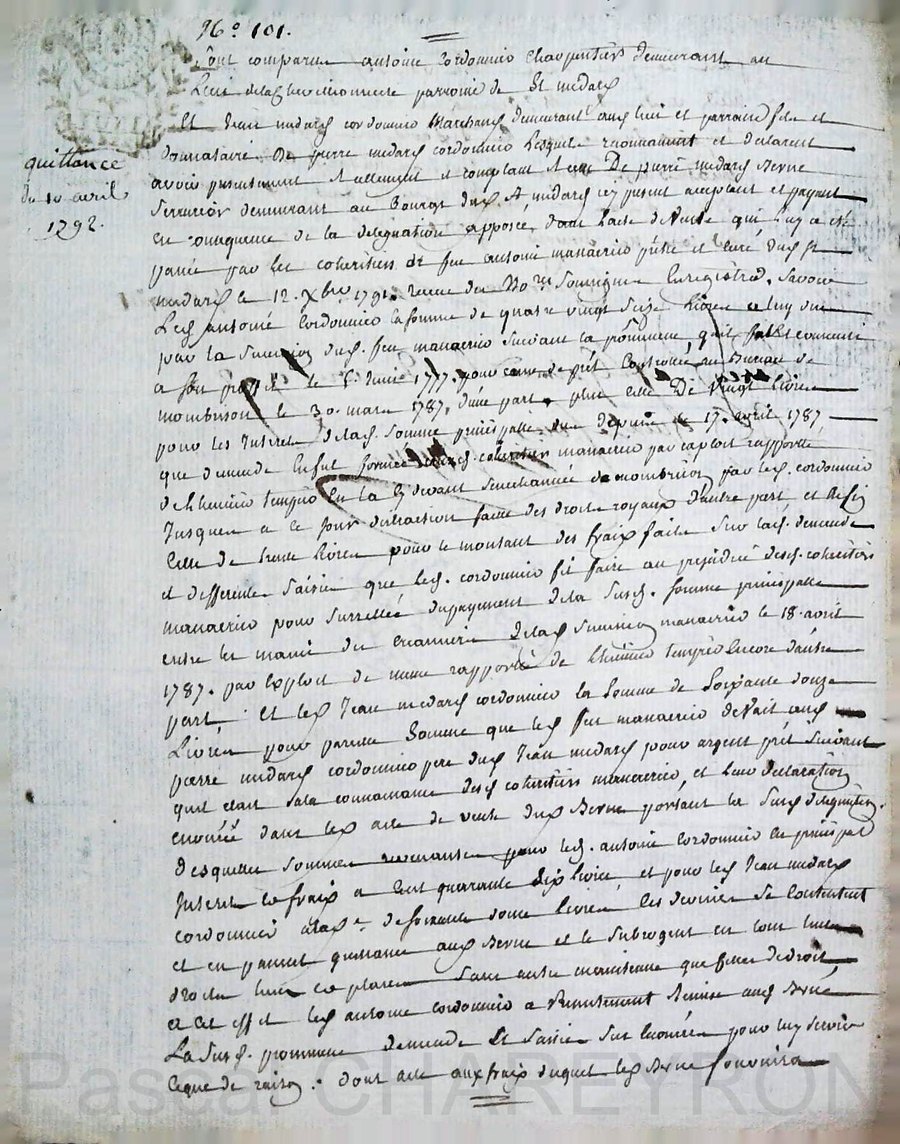 N° 101.
Sont comparus antoine Cordonnier Charpentier demeurant au
Lieu de la parroisse de St medard
Et Jean medard cordonnier Marchand demeurant aud lieu et parroisse fils et
donnataire de pierre medard cordonnier Lesquels reconnaissent et declarent
avoir presentement reellement et comptant reçu De pierre medard Berne
Serrurier demeurant au Bourg dud St medard icy present acceptant et payant
En consequence de la delegation apposée dans l'acte de Vente qui luy a été
passée par les coheritiers de feu antoine manaerico prêtre et curé dud St
medard le 12. Xbre 1791. recue du No.re Enregistrée, Savoir
Led antoine Cordonnier la somme de quatre vingt Seize livres a luy due
par la Succession dud. feu manaerico suivant la promesse qu'il fait et consenti
a son proffit le 1777. pour cause de prêt Controllée au Bureau de
montbrison le 30. mars 1787, d'une part, plus celle De Vingt livres
pour les Interets de lad. Somme principalle due depuis le 17. avril 1787,
que demande En fut formée auxd. coheritiers manaerico par exploit rapporté
de en la cy devant Senechaussée de montbrison par led. cordonnier
Jusques a ce jour distraction faitte des droits royaux d'autre part et Enfin
Celle de trente livres pour le montant des fraix faits sur lad. demande
et differentes Saisies que led. cordonnier fit faire au prejudice desd. coheritiers
manaerico pour Surretée du payement de la Susd. somme principalle
entre les mains des creanciers de lad Succession manaerico le 18. août
1787. par exploit de meme rapporté de Encore d'autre
part Et led Jean medard cordonnier la Somme de Soixante douze
Livres pour pareille Somme que led feu manaerico devait aud
pierre medard cordonnier pere dud Jean medard pour argent prêt Suivant
quil etait a la connaissance desd coheritiers manaerico, et leur declaration
enoncée dans led acte de vente dud Berne portant les Susd delegations.
Desquelles sommes revenantes pour led. antoine Cordonnier En principal
Interets et fraix a Cent quarante Six livres et pour led Jean medard
cordonnier a lad.e de soixante douze livres les derniers Se Contentent
et en passent quittance aud Berne et le Subrogent en tous leurs
droits lieu et place Sans autre maintenue que de droit
a cet effet led antoine cordonnier a presentement Remise aud Berne
La Susd. promesse demande Et Saisies Sus enoncées pour luy servir
ce que de raison. dont acte aux fraix duquel led Berne fournira
quittance
du 10 avril
1792.
Pascal CHAREYRON